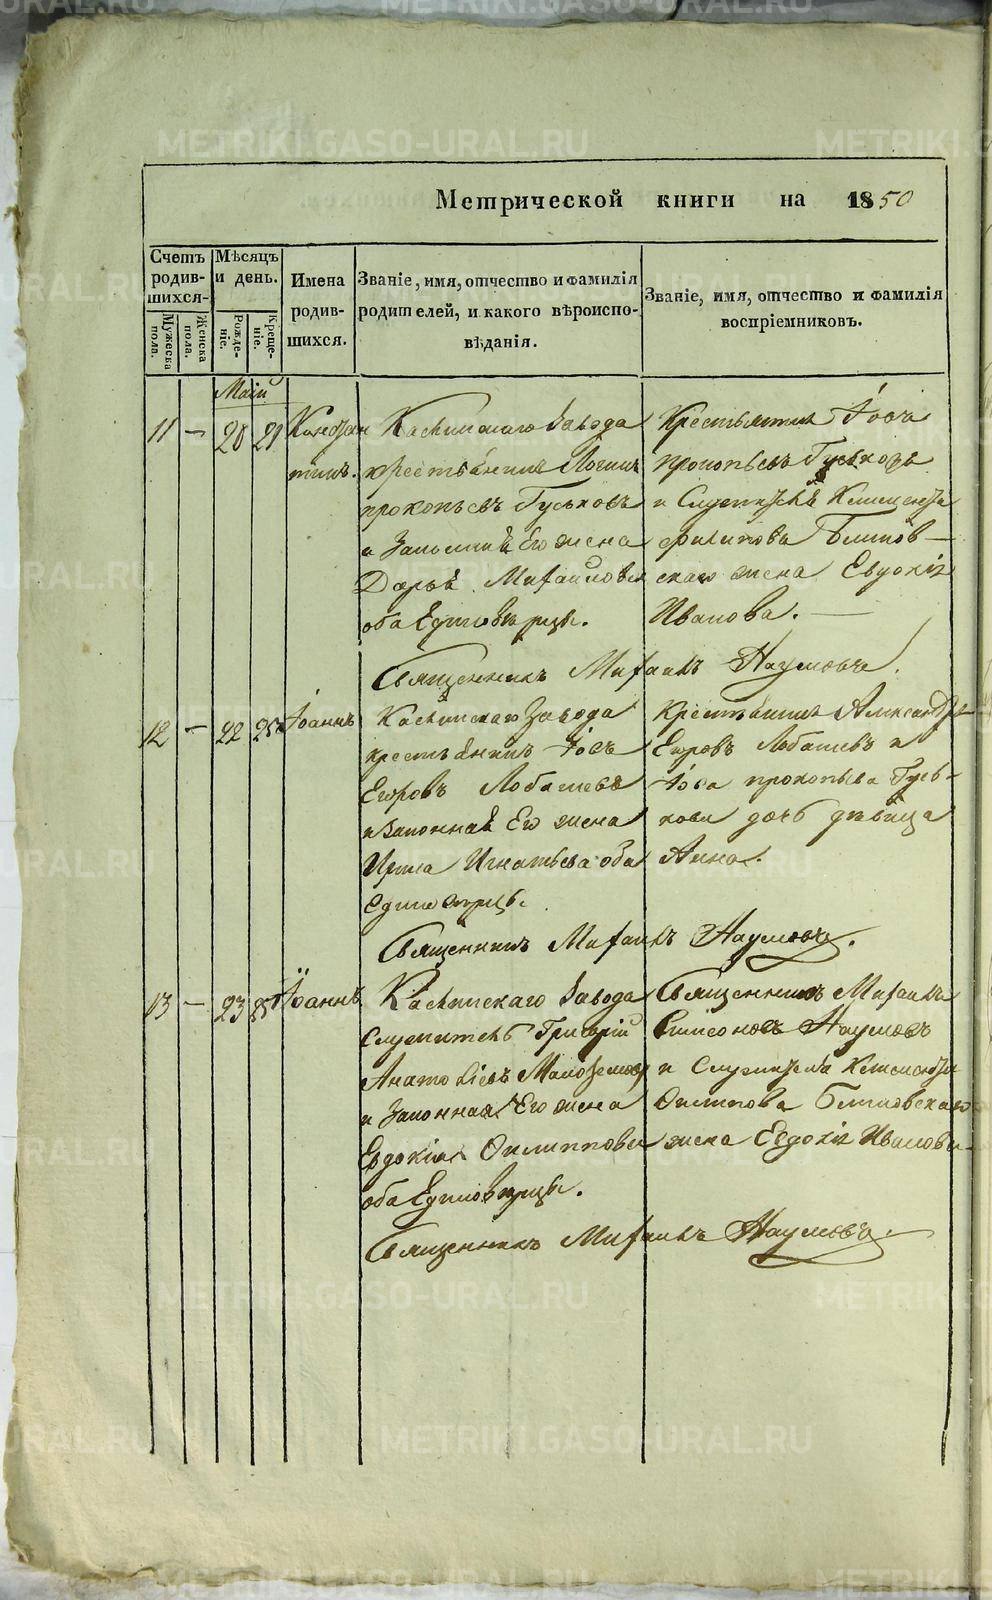 METRIKI.GASO-URAL.RU
Метрической книги на 1850
Счетъ родив-шихся-
Мѣсяцъ и день.
Имена родив-шихся.
Званіе, имя, отчество и фамилія родителей, и какого вѣроиспо-вѣданія.
Званіе, имя, отчество и фамилія воспріемниковъ.
Мужеска пола.
Женска пола.
Рожде-ніе.
Креще-ніе.
Маій
11 — 20 21
Каслинскаго Завода
Крестьянинъ Іовъ
тинъ. крестьянинъ Логинъ
прокопьевъ Гуськовъ
прокопьевъ Гуськовъ
и Законная Его жена
филипова
Дарья Михайловна
скаго жена Евдокія
оба Единовѣрцы.
Иванова. —
Священникъ Михаилъ Наумовъ.
12 — 22 25 Іоаннъ
Каслинскаго Завода
Крестьянинъ Александръ
крестьянинъ Іовъ
Егоровъ Лобашевъ и
Егоровъ Лобашевъ
Іова прокопьева Гусь-
и законная Его жена
кова дочь дѣвица
Ирина Игнатьева оба
Анна.
Священникъ Михаилъ Наумовъ.
13 — 23 25 Іоаннъ
Каслинскаго Завода
Священникъ Михаилъ
Служитель Григорій
Симеоновъ Наумовъ
и Служителя
и Законная Его жена
Филипова
Евдокія Филиппова
жена Евдокія Иванова
оба Единовѣрцы.
Священникъ Михаилъ Наумовъ.